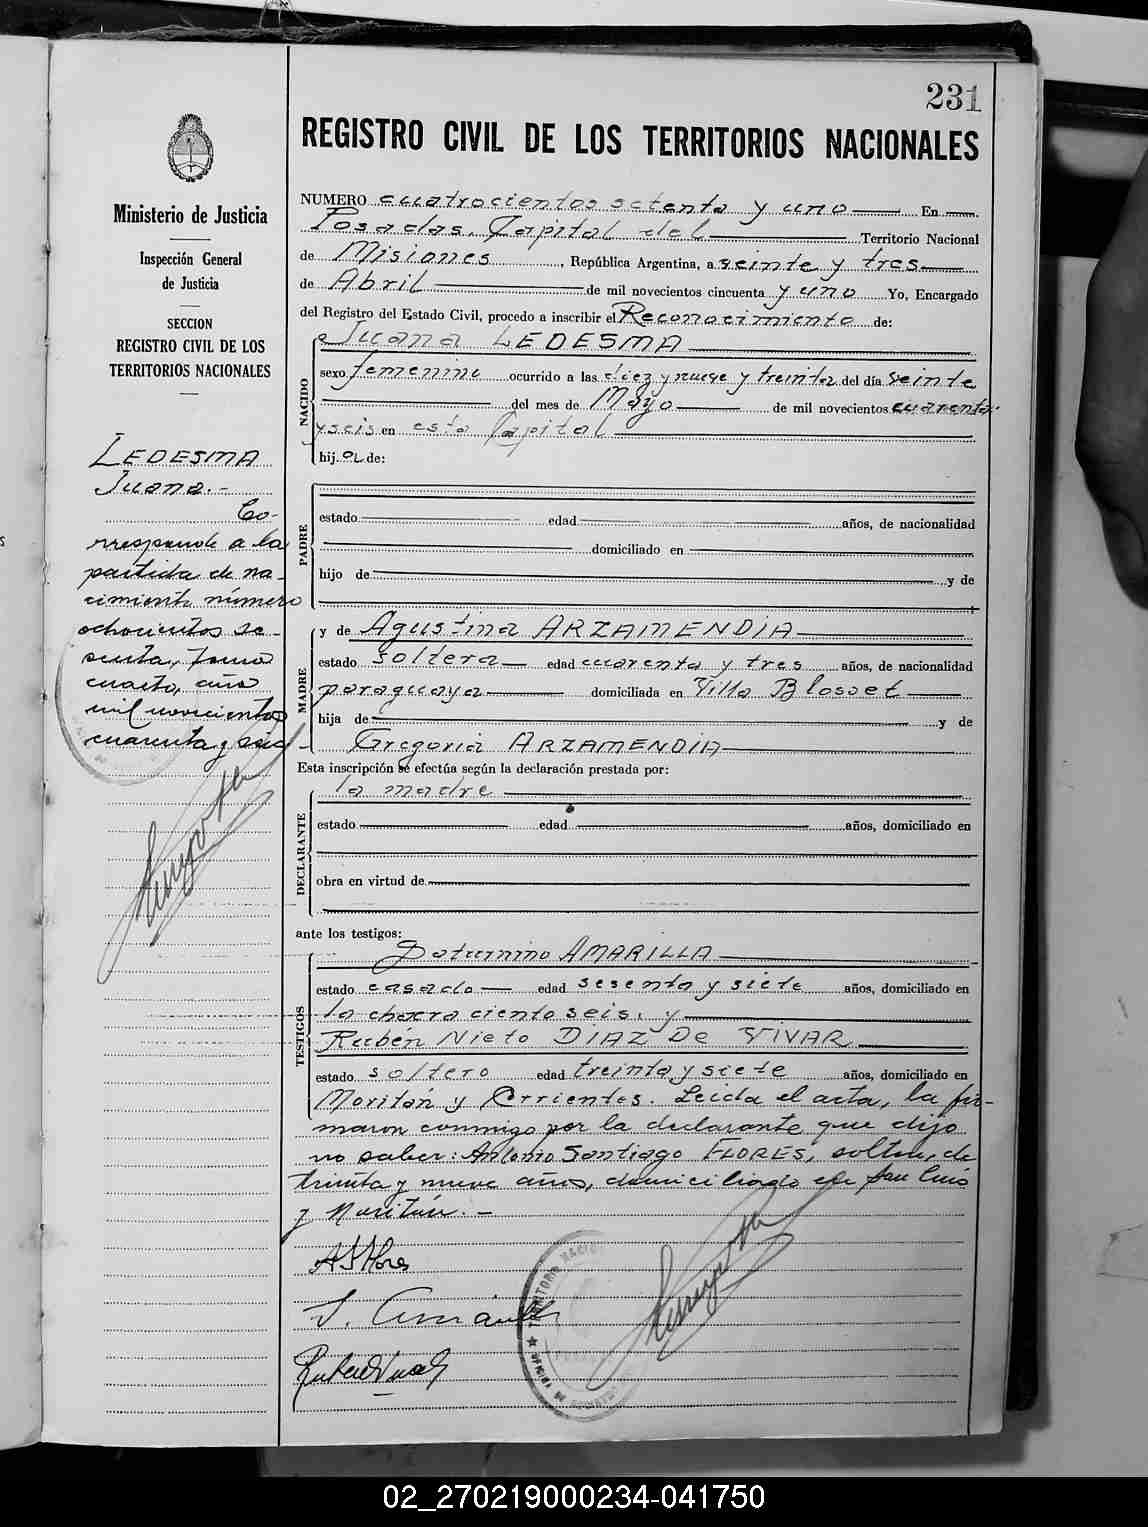 231
REGISTRO CIVIL DE LOS TERRITORIOS NACIONALES
Ministerio de Justicia
Inspección General
de Justicia
SECCION
REGISTRO CIVIL DE LOS
TERRITORIOS NACIONALES
LEDESMA
Juana.-
Co-
rresponde a la
partida de na-
cimiento número
ochocientos se-
senta, tomo
cuarto, año
mil novecientos
cuarenta y seis
NUMERO cuatrocientos setenta y uno En
Posadas, Capital del Territorio Nacional
de Misiones, República Argentina, a veinte y tres
de Abril de mil novecientos cincuenta y uno Yo, Encargado
del Registro del Estado Civil, procedo a inscribir el Reconocimiento de:
NACIDO
Juana LEDESMA
sexo femenino ocurrido a las diez y nueve y treinta del día veinte
del mes de Mayo de mil novecientos cuarenta
y seis en esta Capital
hij a de:
PADRE
estado edad años, de nacionalidad
domiciliado en
hijo de y de
MADRE
y de Agustina ARZAMENDIA
estado soltera edad cuarenta y tres años, de nacionalidad
paraguaya domiciliada en Villa Blosset
hija de y de
Gregoria ARZAMENDIA
Esta inscripción se efectúa según la declaración prestada por:
DECLARANTE
la madre
estado edad años, domiciliado en
obra en virtud de
ante los testigos:
TESTIGOS
Saturnino AMARILLA
estado casado edad sesenta y siete años, domiciliado en
la chacra ciento seis, y
Rubén Nieto DIAZ DE VIVAR
estado soltero edad treinta y siete años, domiciliado en
Moritan y Corrientes. Leida el acta, la fir-
maron conmigo por la declarante que dijo
no saber: Antonio Santiago FLORES, soltero, de
treinta y nueve años, domiciliado en San Luis
y Moritán.-
ASFlores
S. Amarilla
TERRITORIO NACIONAL
02_270219000234-041750